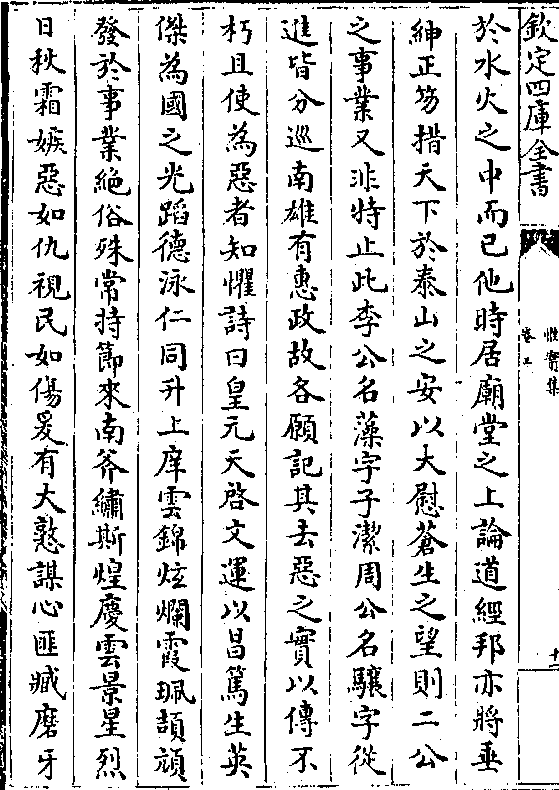 欽定四庫全書
惟實集
卷三
十
於水火之中而已他時居廟堂之上論道經邦亦將垂
紳正笏措天下於泰山之安以大慰蒼生之望則二公
之事業又非特止此李公名藻字子潔周公名驤字從
進皆分巡南雄有惠政故各願記其去惡之實以傳不
朽且使為惡者知懼詩曰皇元天啓文運以昌篤生英
傑為國之光蹈德泳仁同升上庠雲錦炫爛霞珮頡頏
發於事業絶俗殊常持節來南斧繡斯煌慶雲景星烈
日秋霜嫉惡如仇視民如傷爰有大憝謀心匪臧磨牙